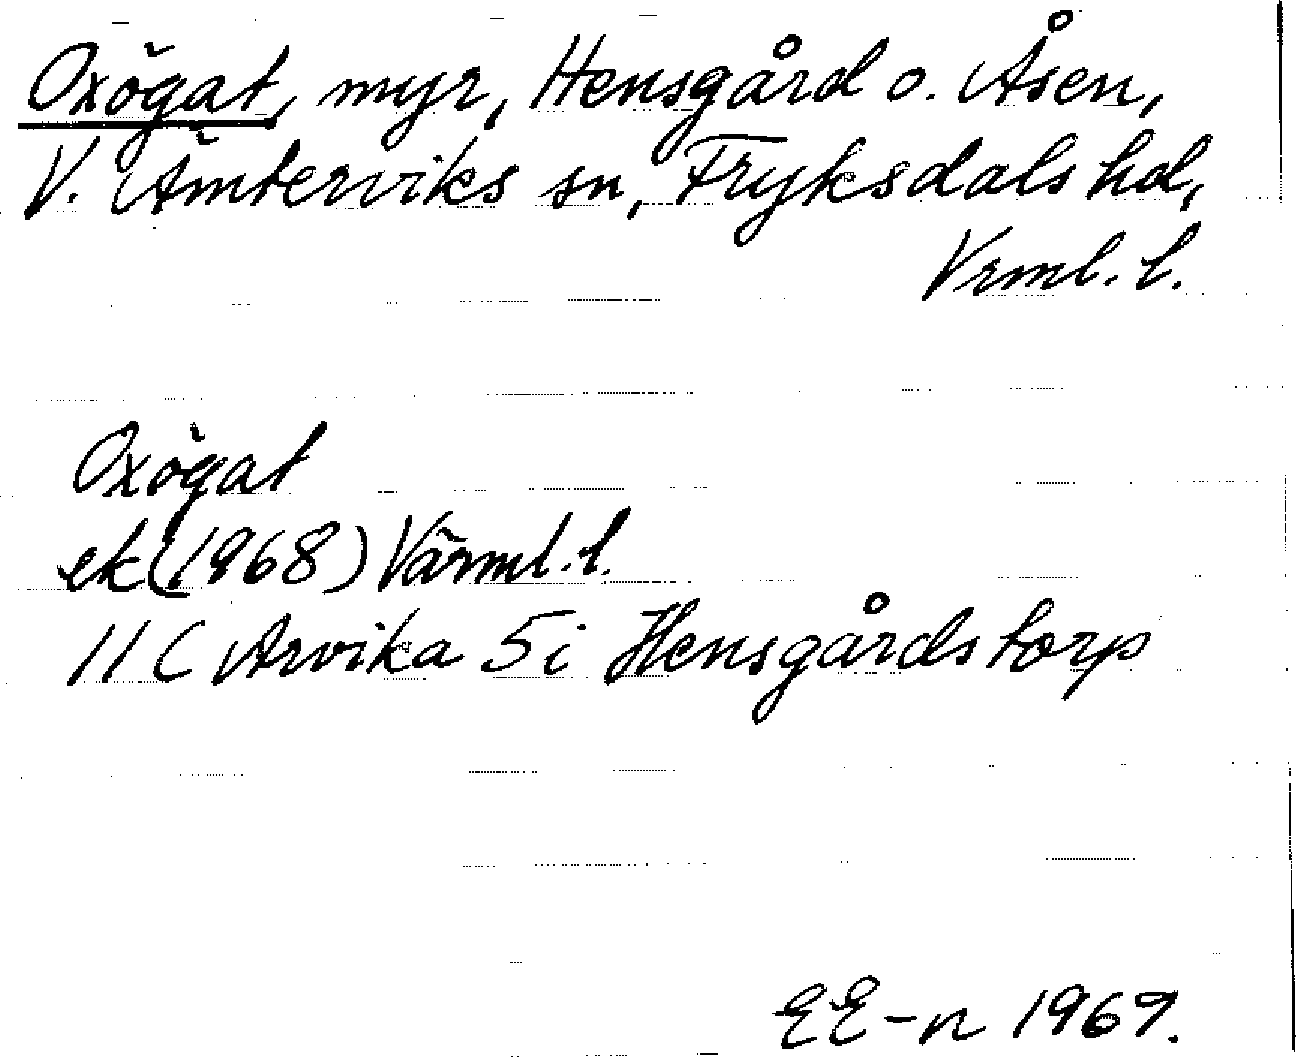 Oxögat, myr, Hensgård o. Åsen,
V. Ämterviks sn, Fryksdals hd,
Vrml. l.
Oxögat
ek (1968) Värml. l.
11 C Arvika 5 i Hensgårdstorp
EE-n 1969.